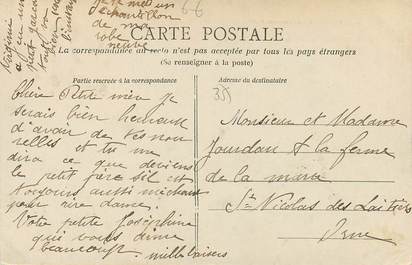 je met un
échantillon
de ma
robe
neuve
Virginie
a eu un
petit garçon
66
CARTE POSTALE
La correspondance au recto n'est pas acceptée par tous les pays étrangers
(Se renseigner à la poste)
Partie réservée à la correspondance
Adresse du destinataire
Chère Petite mère je
serais bien heureuse
d'avoir de tes nou
velles et tu me
dira ce que deviens
le petit frère s'il est
toujours aussi méchant
pour rire dame.
Votre petite Joséphine
qui vous aime
beaucoup. mille baisers
355
Monsieur et Madame
Jourdan à la ferme
de la mare
St Nicolas des Laitiers
Orne